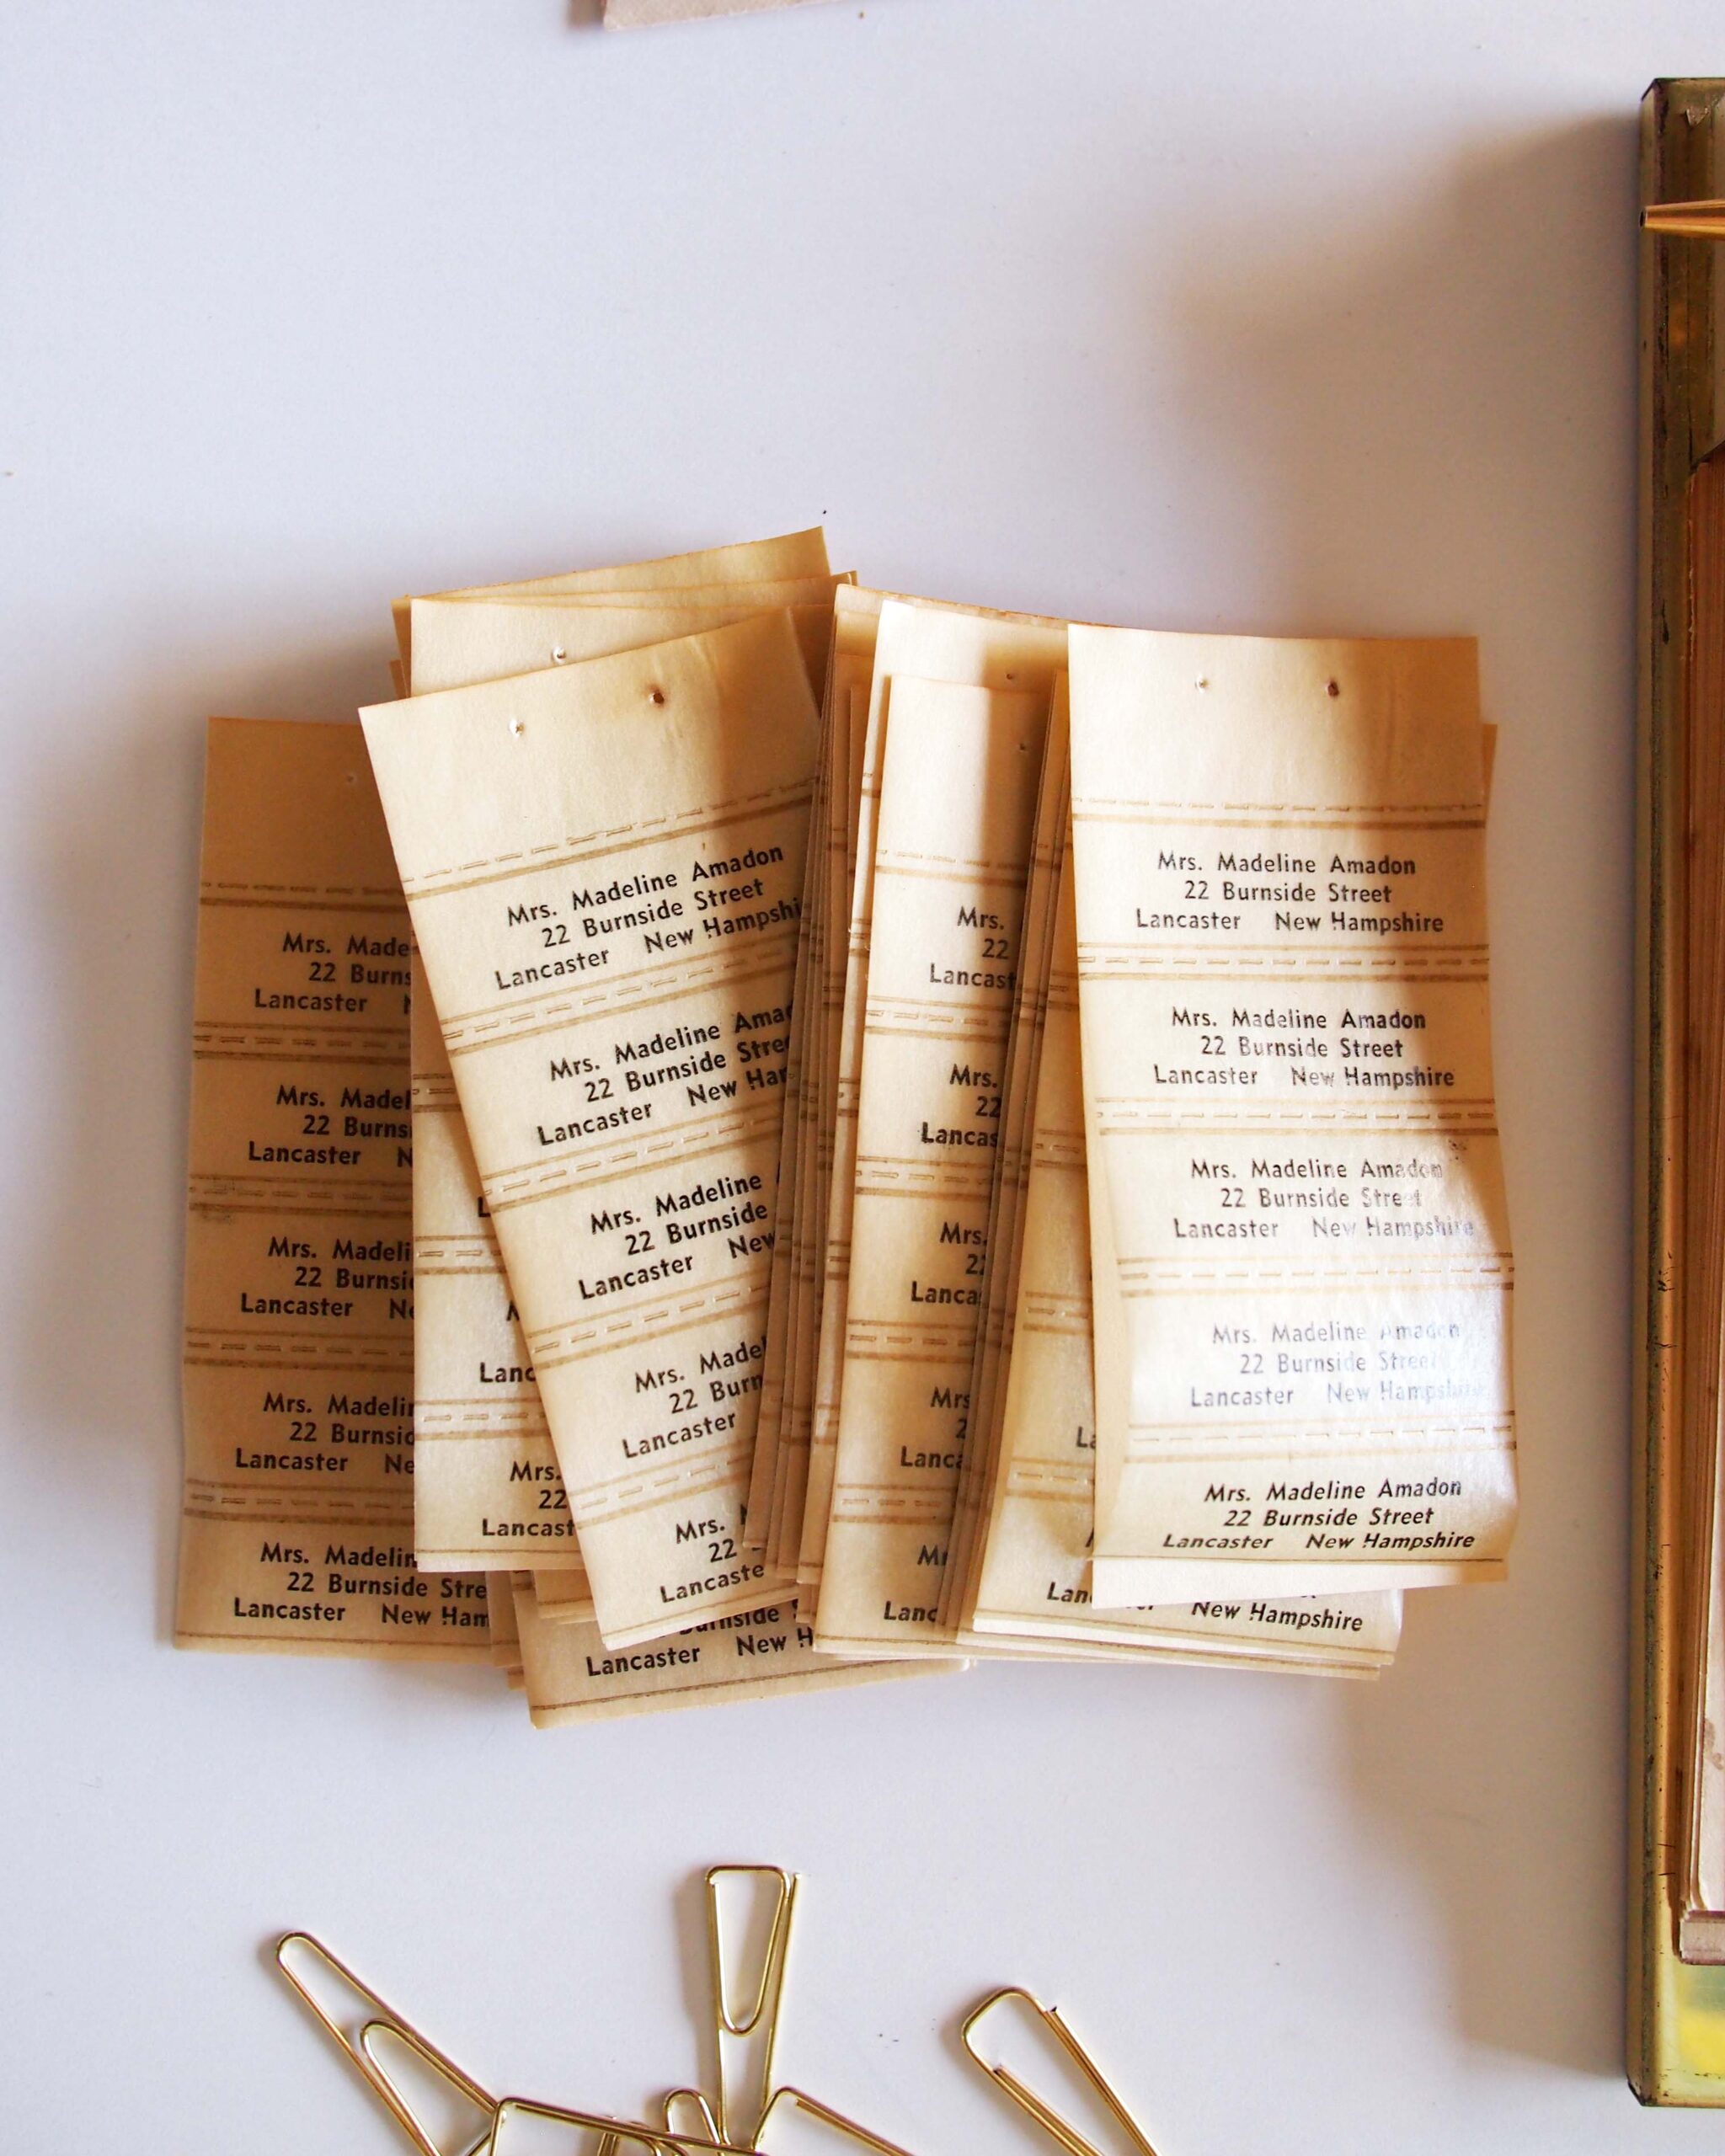 Mrs. Made
22 Burns
Lancaster
Mrs. Madel
22 Burns
Lancaster N
Mrs. Madeli
22 Burnsi
Lancaster Ne
Mrs. Madelin
22 Burnsid
Lancaster Ne
Mrs. Madelin
22 Burnside Stre
Lancaster New Ham
Lanc
Mrs.
22
Lancast
Mrs. Madeline Amadon
22 Burnside Street
Lancaster New Hampshi
Mrs. Madeline Amad
22 Burnside Stree
Lancaster New Ham
Mrs. Madeline
22 Burnside
Lancaster New
Mrs. Madel
22 Burn
Lancaster
Mrs.
22
Lancaste
Burnside
Lancaster New H
Mrs.
22
Lancast
Mrs.
22
Lancas
Mrs.
22
Lanca
Mrs
2
Lanca
M
Lanc
La
Lan
New Hampshire
Mrs. Madeline Amadon
22 Burnside Street
Lancaster New Hampshire
Mrs. Madeline Amadon
22 Burnside Street
Lancaster New Hampshire
Mrs. Madeline Amadon
22 Burnside Street
Lancaster New Hampshire
Mrs. Madeline Amadon
22 Burnside Street
Lancaster New Hampshire
Mrs. Madeline Amadon
22 Burnside Street
Lancaster New Hampshire